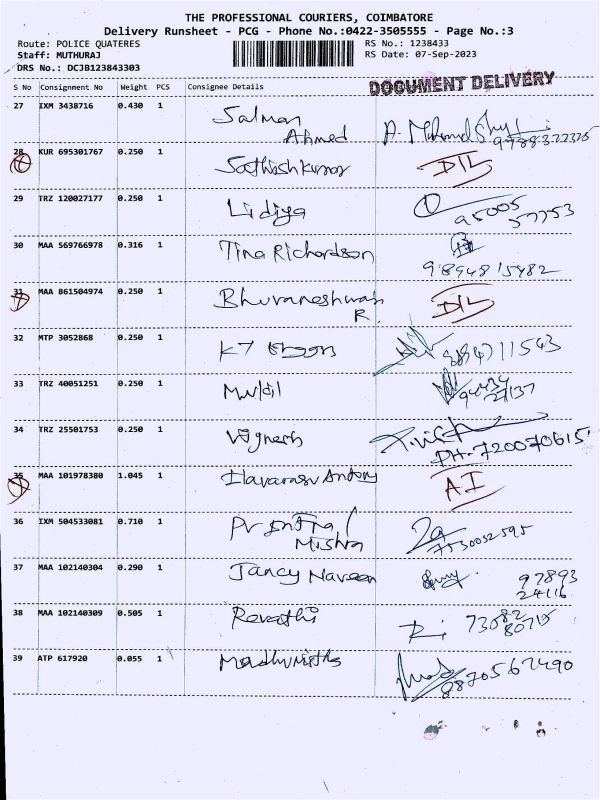 THE PROFESSIONAL COURIERS, COIMBATORE
Delivery Runsheet - PCG - Phone No.:0422-3505555 - Page No.:3
Route: POLICE QUATERES RS No.: 1238433
Staff: MUTHURAJ RS Date: 07-Sep-2023
DRS No.: DCJB123843303
DOCUMENT DELIVERY
S No Consignment No Weight PCS Consignee Details
27 IXM 3438716 0.430 1 Salman
Ahmed
9788322325
28 KUR 695301767 0.250 1 Sathishkumar D/L
29 TRZ 120027177 0.250 1 Lidiya 95005
57753
30 MAA 569766978 0.316 1 Tina Richardson
9894815482
31 MAA 861504974 0.250 1 Bhuvaneshwari D/L
R.
32 MTP 3052868 0.250 1 KT 8894711543
33 TRZ 40051251 0.250 1 94434
27137
34 TRZ 25501753 0.250 1 Vignesh
PH-720070615
35 MAA 101978380 1.045 1 Ilavarasu Antony A.I
36 IXM 504533081 0.710 1
Mishra 7530052595
37 MAA 102140304 0.290 1 Jancy Naveen 97893
24116
38 MAA 102140309 0.505 1 Revathi 73082
80715
39 ATP 617920 0.055 1 8870562490